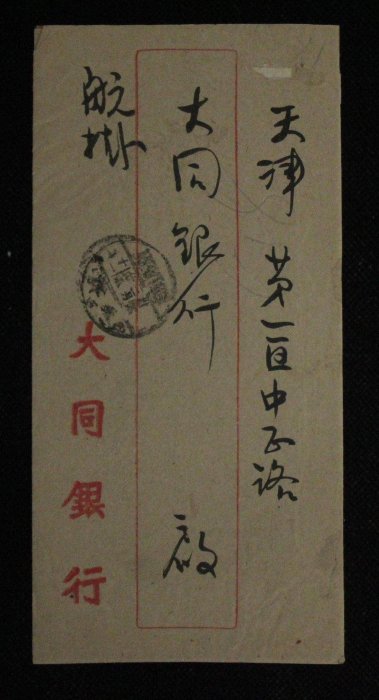 天津 第一區中正路
大同銀行 啟
航掛
大同銀行